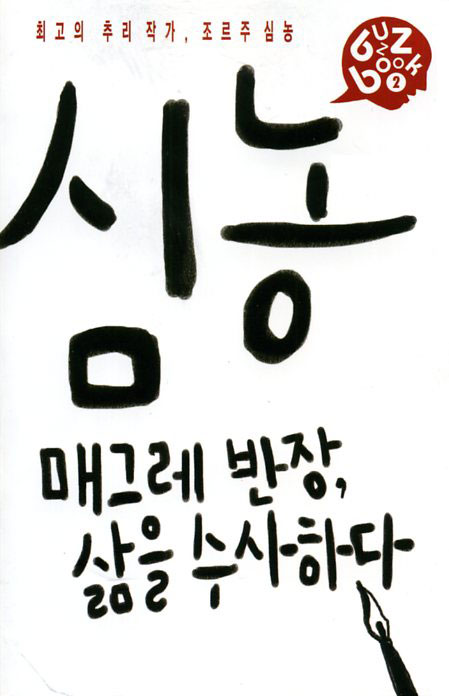 최고의 추리 작가, 조르주 심농
buzz
book
2
심농
매그레 반장,
삶을 수사하다